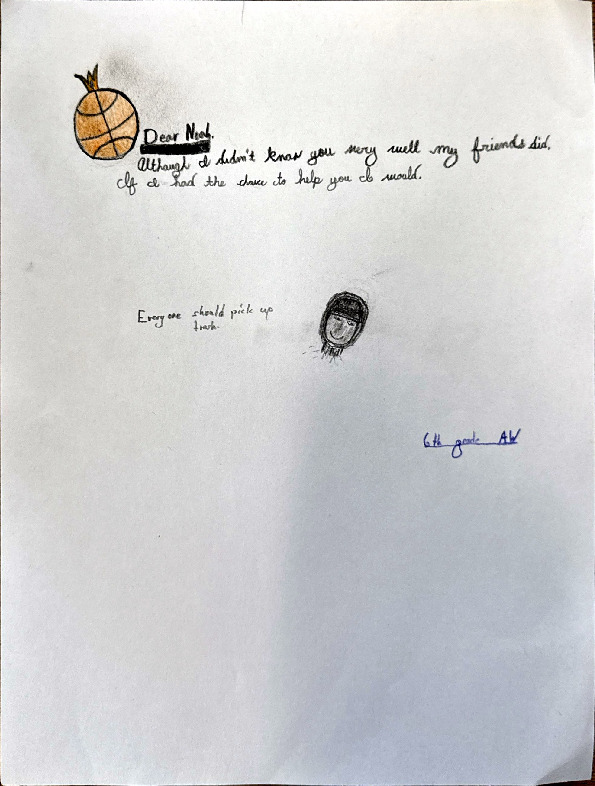 Dear Noah.
Although I didn't know you very well my friends did.
If I had the chance to help you I would.
Everyone should pick up
trash.
6th grade AW